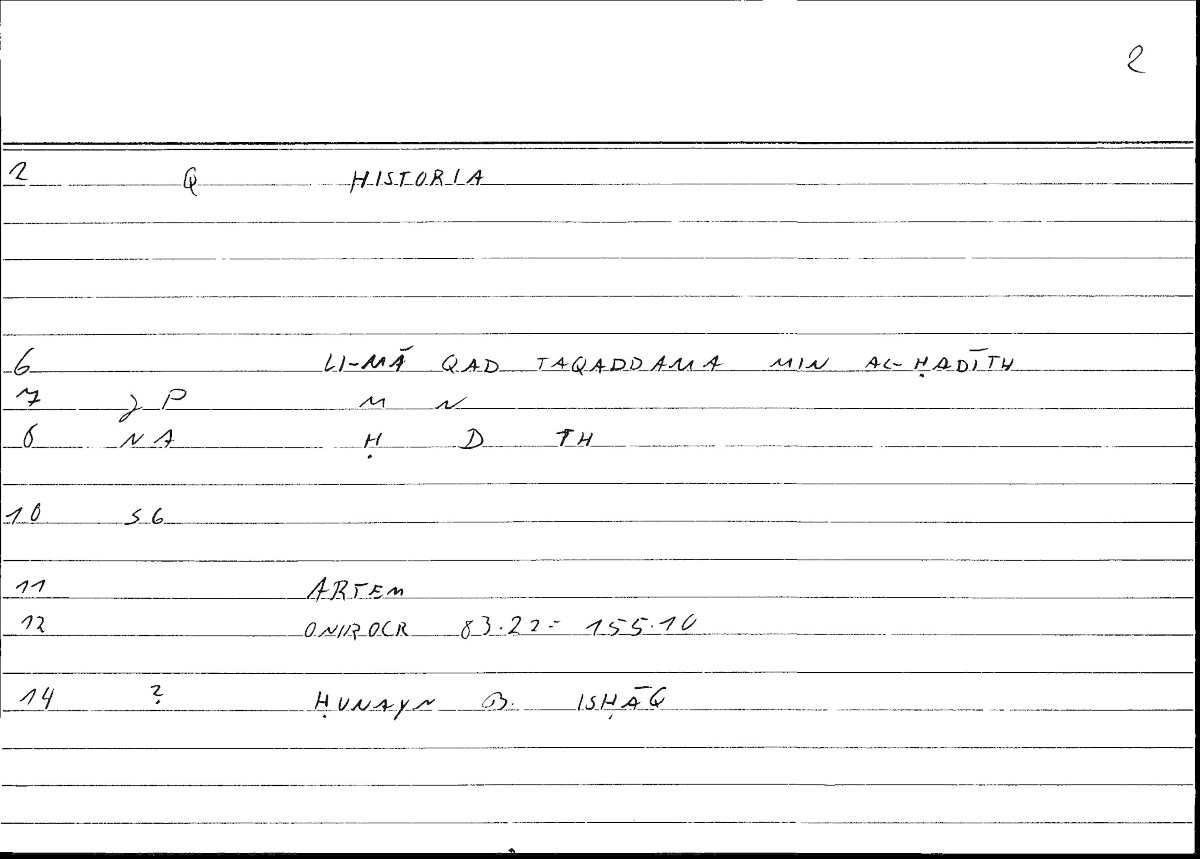 2
2 Q HISTORIA
6 LI-MĀ QAD TAQADDAMA MIN AL-ḤADĪTH
7 P M N
8 NA Ḥ D TH
10 56
11 ARTEM
12 ONIROCR 83.22= 155.10
14 ? ḤUNAYN B. ISḤĀQ